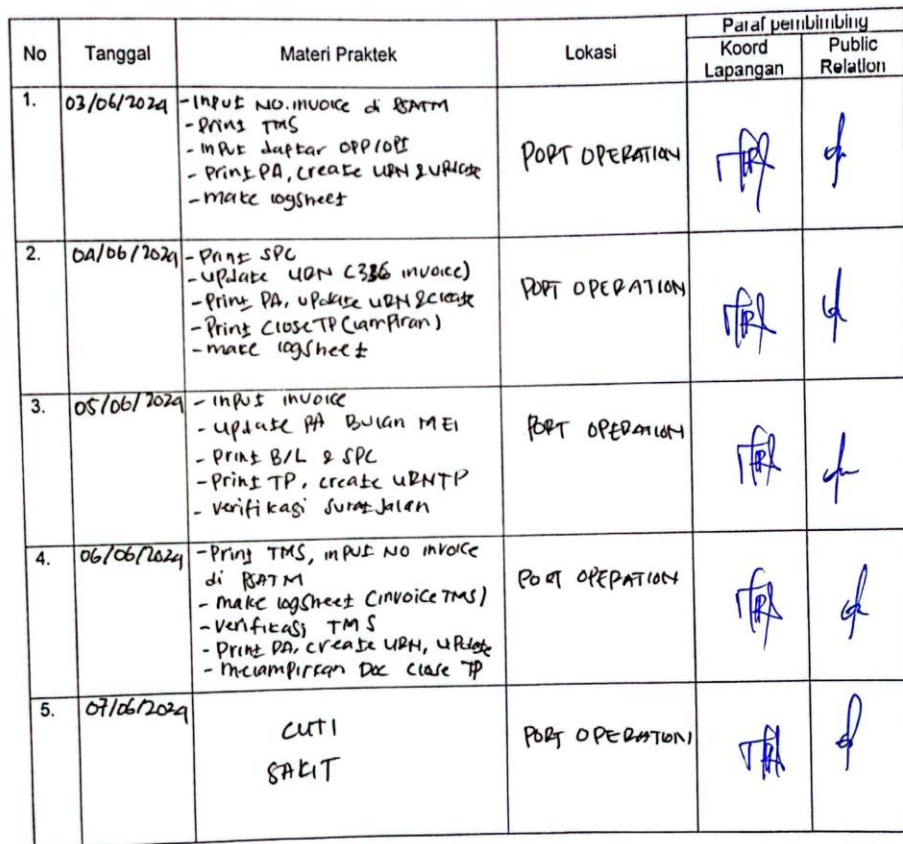 Paraf pembimbing
No Tanggal Materi Praktek Lokasi Koord Lapangan Public Relation
1. 03/06/2024 - Input NO. invoice di BSATM
- Print TMS
- Input daftar OPP/OPI
- Print PA, create URN & update
- make logsheet
PORT OPERATION
2. 04/06/2024 - Print SPC
- update URN (336 invoice)
- Print PA, update URN & create
- Print Close TP (lampiran)
- make logsheet
PORT OPERATION
3. 05/06/2024 - input invoice
- update PA Bulan MEI
- Print B/L & SPC
- Print TP, create URN TP
- verifikasi surat jalan
PORT OPERATION
4. 06/06/2024 - Print TMS, input NO invoice
di BSATM
- make logsheet (invoice TMS)
- verifikasi TMS
- Print PA, create URN, update
- melampirkan Doc close TP
PORT OPERATION
5. 07/06/2024 CUTI
SAKIT
PORT OPERATION